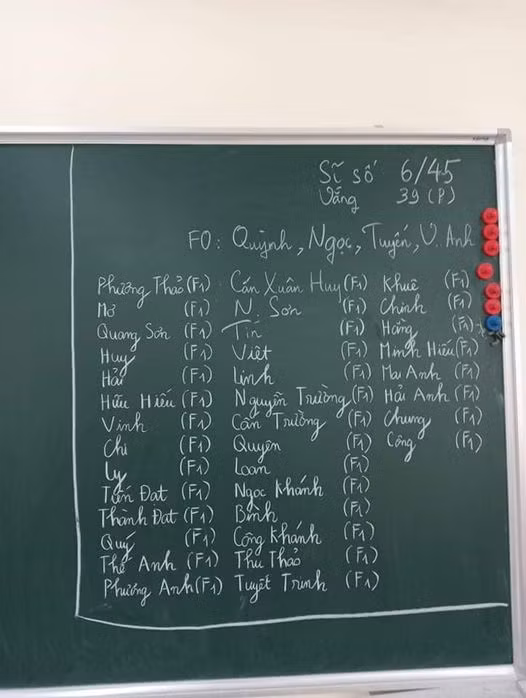 Sĩ số 6/45
Vắng 39 (P)
F0: Quỳnh, Ngọc, Tuyến, V. Anh
Phương Thảo (F1) Cấn Xuân Huy (F1) Khuê (F1)
Mơ (F1) N. Sơn (F1) Chinh (F1)
Quang Sơn (F1) Tín (F1) Hồng (F1)
Huy (F1) Việt (F1) Minh Hiếu (F1)
Hải (F1) Linh (F1) Mai Anh (F1)
Hữu Hiếu (F1) Nguyễn Trường (F1) Hải Anh (F1)
Vinh (F1) Cấn Trường (F1) Chung (F1)
Chi (F1) Quyên (F1) Công (F1)
Ly (F1) Loan (F1)
Tiến Đạt (F1) Ngọc Khánh (F1)
Thành Đạt (F1) Bình (F1)
Quý (F1) Công Khánh (F1)
Thế Anh (F1) Thu Thảo (F1)
Phương Anh (F1) Tuyết Trinh (F1)